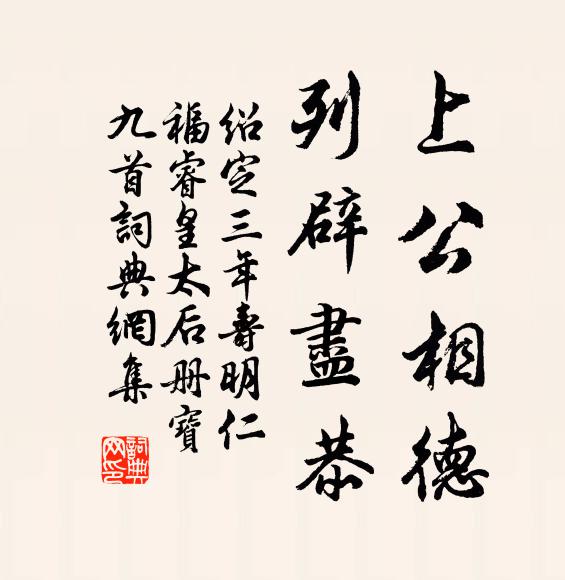 上公相德
列辟盡恭
紹定三年壽明仁
福睿皇太后册寶
九首詞典網集
詞典網印